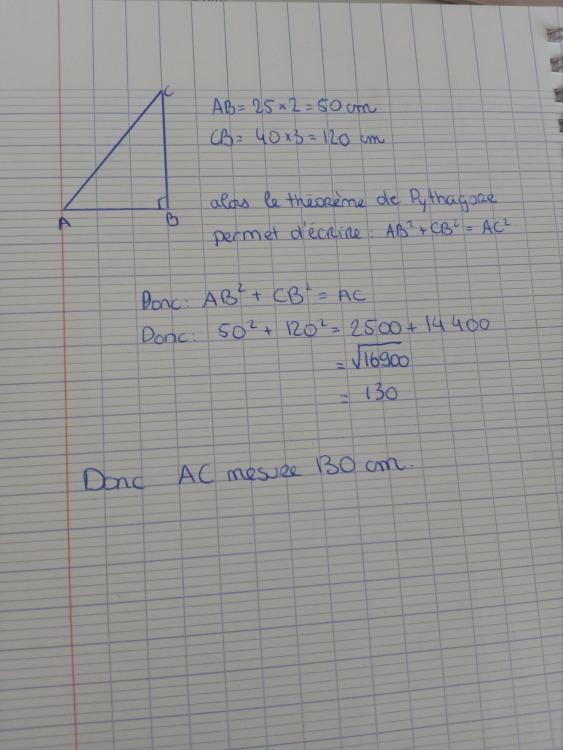 C
AB = 25 × 2 = 50 cm
CB = 40 × 3 = 120 cm
alors le théorème de Pythagore
A
B
permet d'écrire : AB² + CB² = AC²
Donc : AB² + CB² = AC
Donc : 50² + 120² = 2500 + 14 400
= √16900
= 130
Donc AC mesure 130 cm.